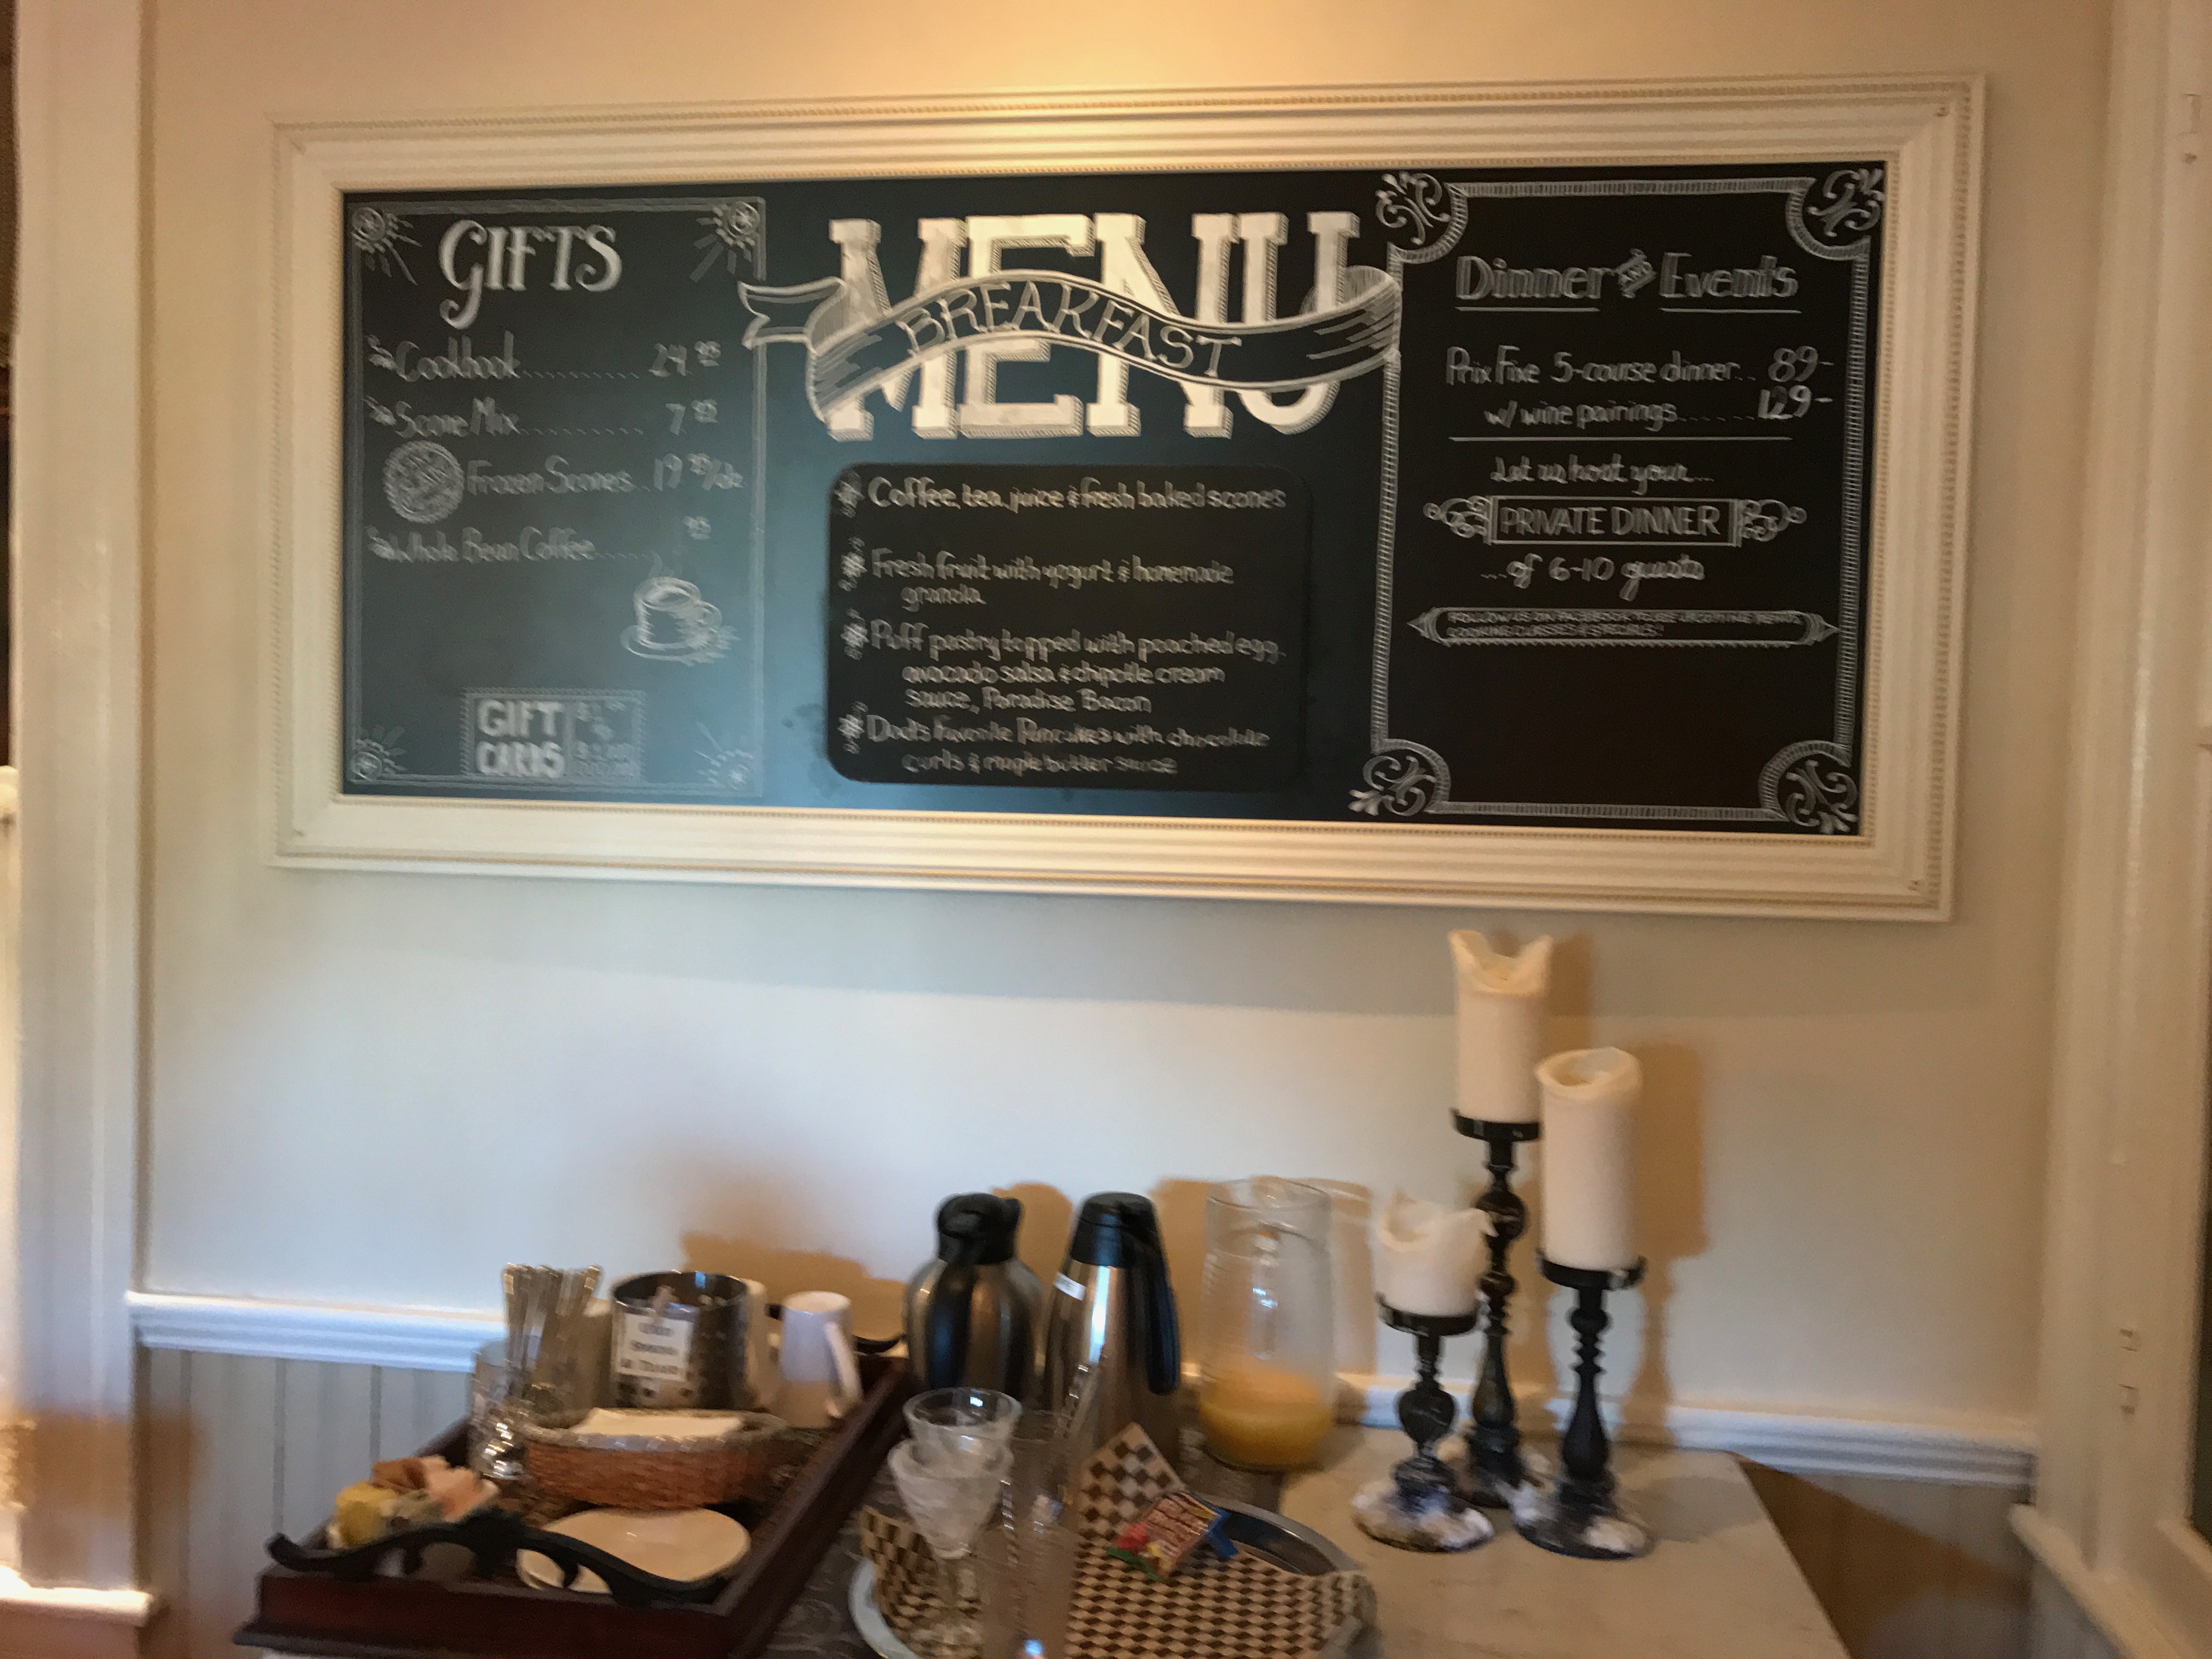 GIFTS
Cookbook.......... 24.95
Scone Mix.......... 7.95
Frozen Scones.. 19.95/dz
Whole Bean Coffee..... .95
GIFT
CARDS
MENU
BREAKFAST
Coffee, tea, juice & fresh baked scones
Fresh fruit with yogurt & homemade
granola
Puff pastry topped with poached egg,
avocado salsa & chipotle cream
sauce, Paradise Bacon
Dad's Favorite Pancakes with chocolate
curls & maple butter sauce
Dinner and Events
Prix Fixe 5-course dinner.. 89-
w/ wine pairings......129-
Let us host your...
PRIVATE DINNER
...of 6-10 guests
FOLLOW US ON FACEBOOK TO SEE UPCOMING MENUS,
COOKING CLASSES & SPECIALS!